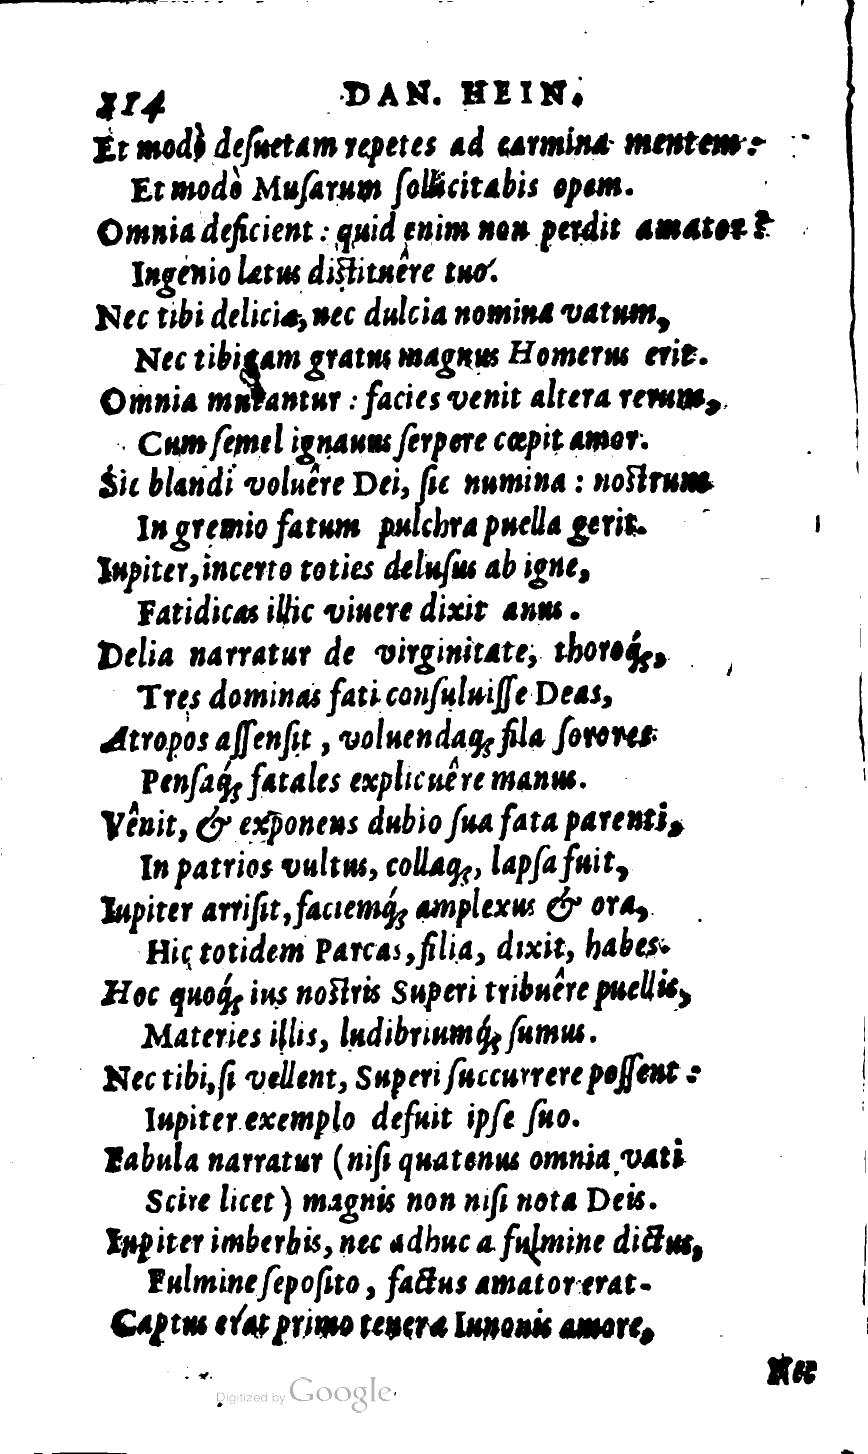 214 DAN. HEIN.
Et modò deſuetam repetes ad carmina mentem:
Et modò Muſarum ſollicitabis opem.
Omnia deficient: quid enim non perdit amator?
Ingenio latus diſtituêre tuo.
Nec tibi deliciæ, nec dulcia nomina vatum,
Nec tibi jam gratus magnus Homerus erit.
Omnia mutantur: facies venit altera rerum,
Cum ſemel ignauus ſerpere cœpit amor.
Sic blandi voluêre Dei, ſic numina: noſtrum
In gremio fatum pulchra puella gerit.
Iupiter, incerto toties deluſus ab igne,
Fatidicas illic viuere dixit anus.
Delia narratur de virginitate, thoroq́;,
Tres dominas fati conſuluiſſe Deas,
Atropos aſſenſit, voluendaq; fila ſorores
Penſaq́; fatales explicuêre manus.
Vênit, & exponens dubio ſua fata parenti,
In patrios vultus, collaq;, lapſa fuit,
Iupiter arriſit, faciemq́; amplexus & ora,
Hic totidem Parcas, filia, dixit, habes.
Hoc quoq́; ius noſtris Superi tribuêre puellis,
Materies illis, ludibriumq́; ſumus.
Nec tibi, ſi vellent, Superi ſuccurrere poſſent:
Iupiter exemplo defuit ipſe ſuo.
Fabula narratur (niſi quatenus omnia vati
Scire licet) magnis non niſi nota Deis.
Iupiter imberbis, nec adhuc a fulmine dictus,
Fulmine ſepoſito, factus amator erat.
Captus erat primo tenera Iunonis amore,
Nec
Digitized by Google